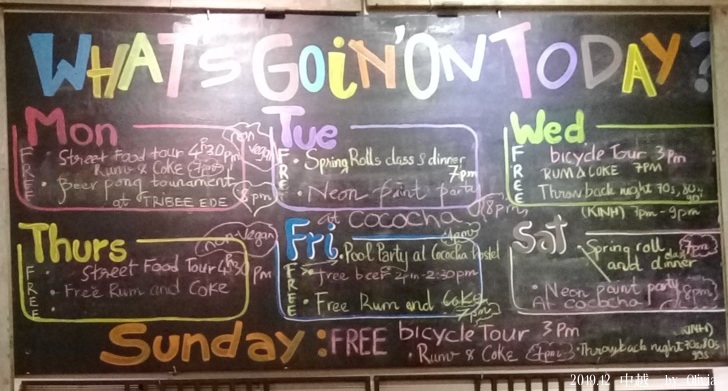 WHAT'S GOIN' ON TODAY?
Mon
FREE
Street Food tour 4:30pm
non vegan
Rum & Coke 7pm
Beer pong tournament
at TRIBEE EDE
8pm
Tue
FREE
Spring Rolls class & dinner
7pm
Neon paint party
at COCOCHA
8pm
Wed
FREE
bicycle Tour 3pm
RUM & COKE 7PM
Throwback night 70s, 80s
90s
(KINH) 7pm - 9pm
Thurs
FREE
non vegan
Street Food Tour 4:30 pm
Free Rum and Coke
Fri
FREE
Pool Party at Cococha Hostel
free beer 2pm-2:30pm
Free Rum and Coke
7pm
Sat
Spring roll class
and dinner
7pm
Neon paint party
At cococha
8pm
Sunday : FREE bicycle Tour 3pm
Rum & COKE 7pm
Throwback night 70s, 80s
90s
(KINH)
2019.12 中越 by Olivia